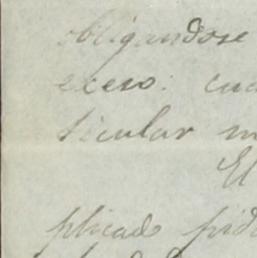 obligandose
exeso: cua
ticular m
El
plicado pida